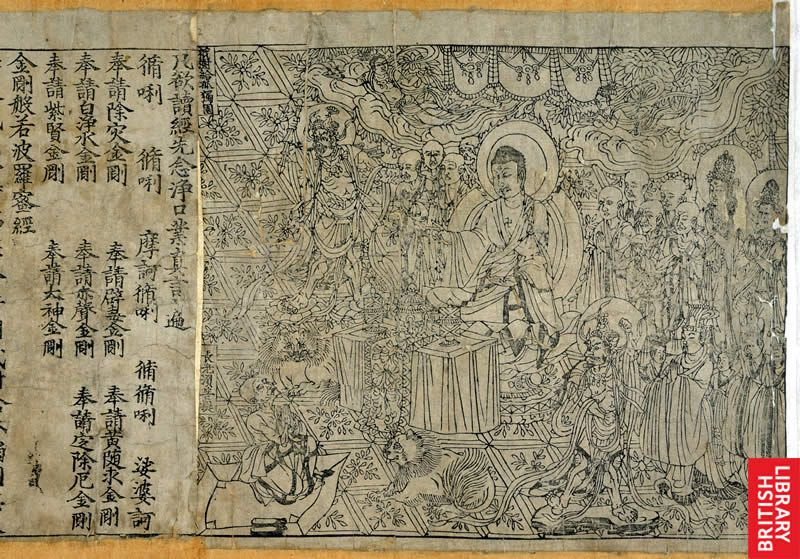 祇樹給孤獨園
長老須菩提
凡欲讀經先念淨口業真言一遍
脩唎 脩唎 摩訶脩唎 脩脩唎 娑婆訶
奉請除灾金剛 奉請辟毒金剛 奉請黃隨求金剛
奉請白淨水金剛 奉請赤聲金剛 奉請定除厄金剛
奉請紫賢金剛 奉請大神金剛
金剛般若波羅蜜經
BRITISH
LIBRARY